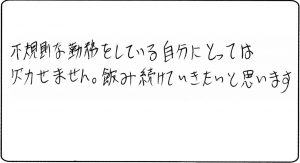 不規則な勤務をしている自分にとっては
欠カせません。飲み続けていきたいと思います